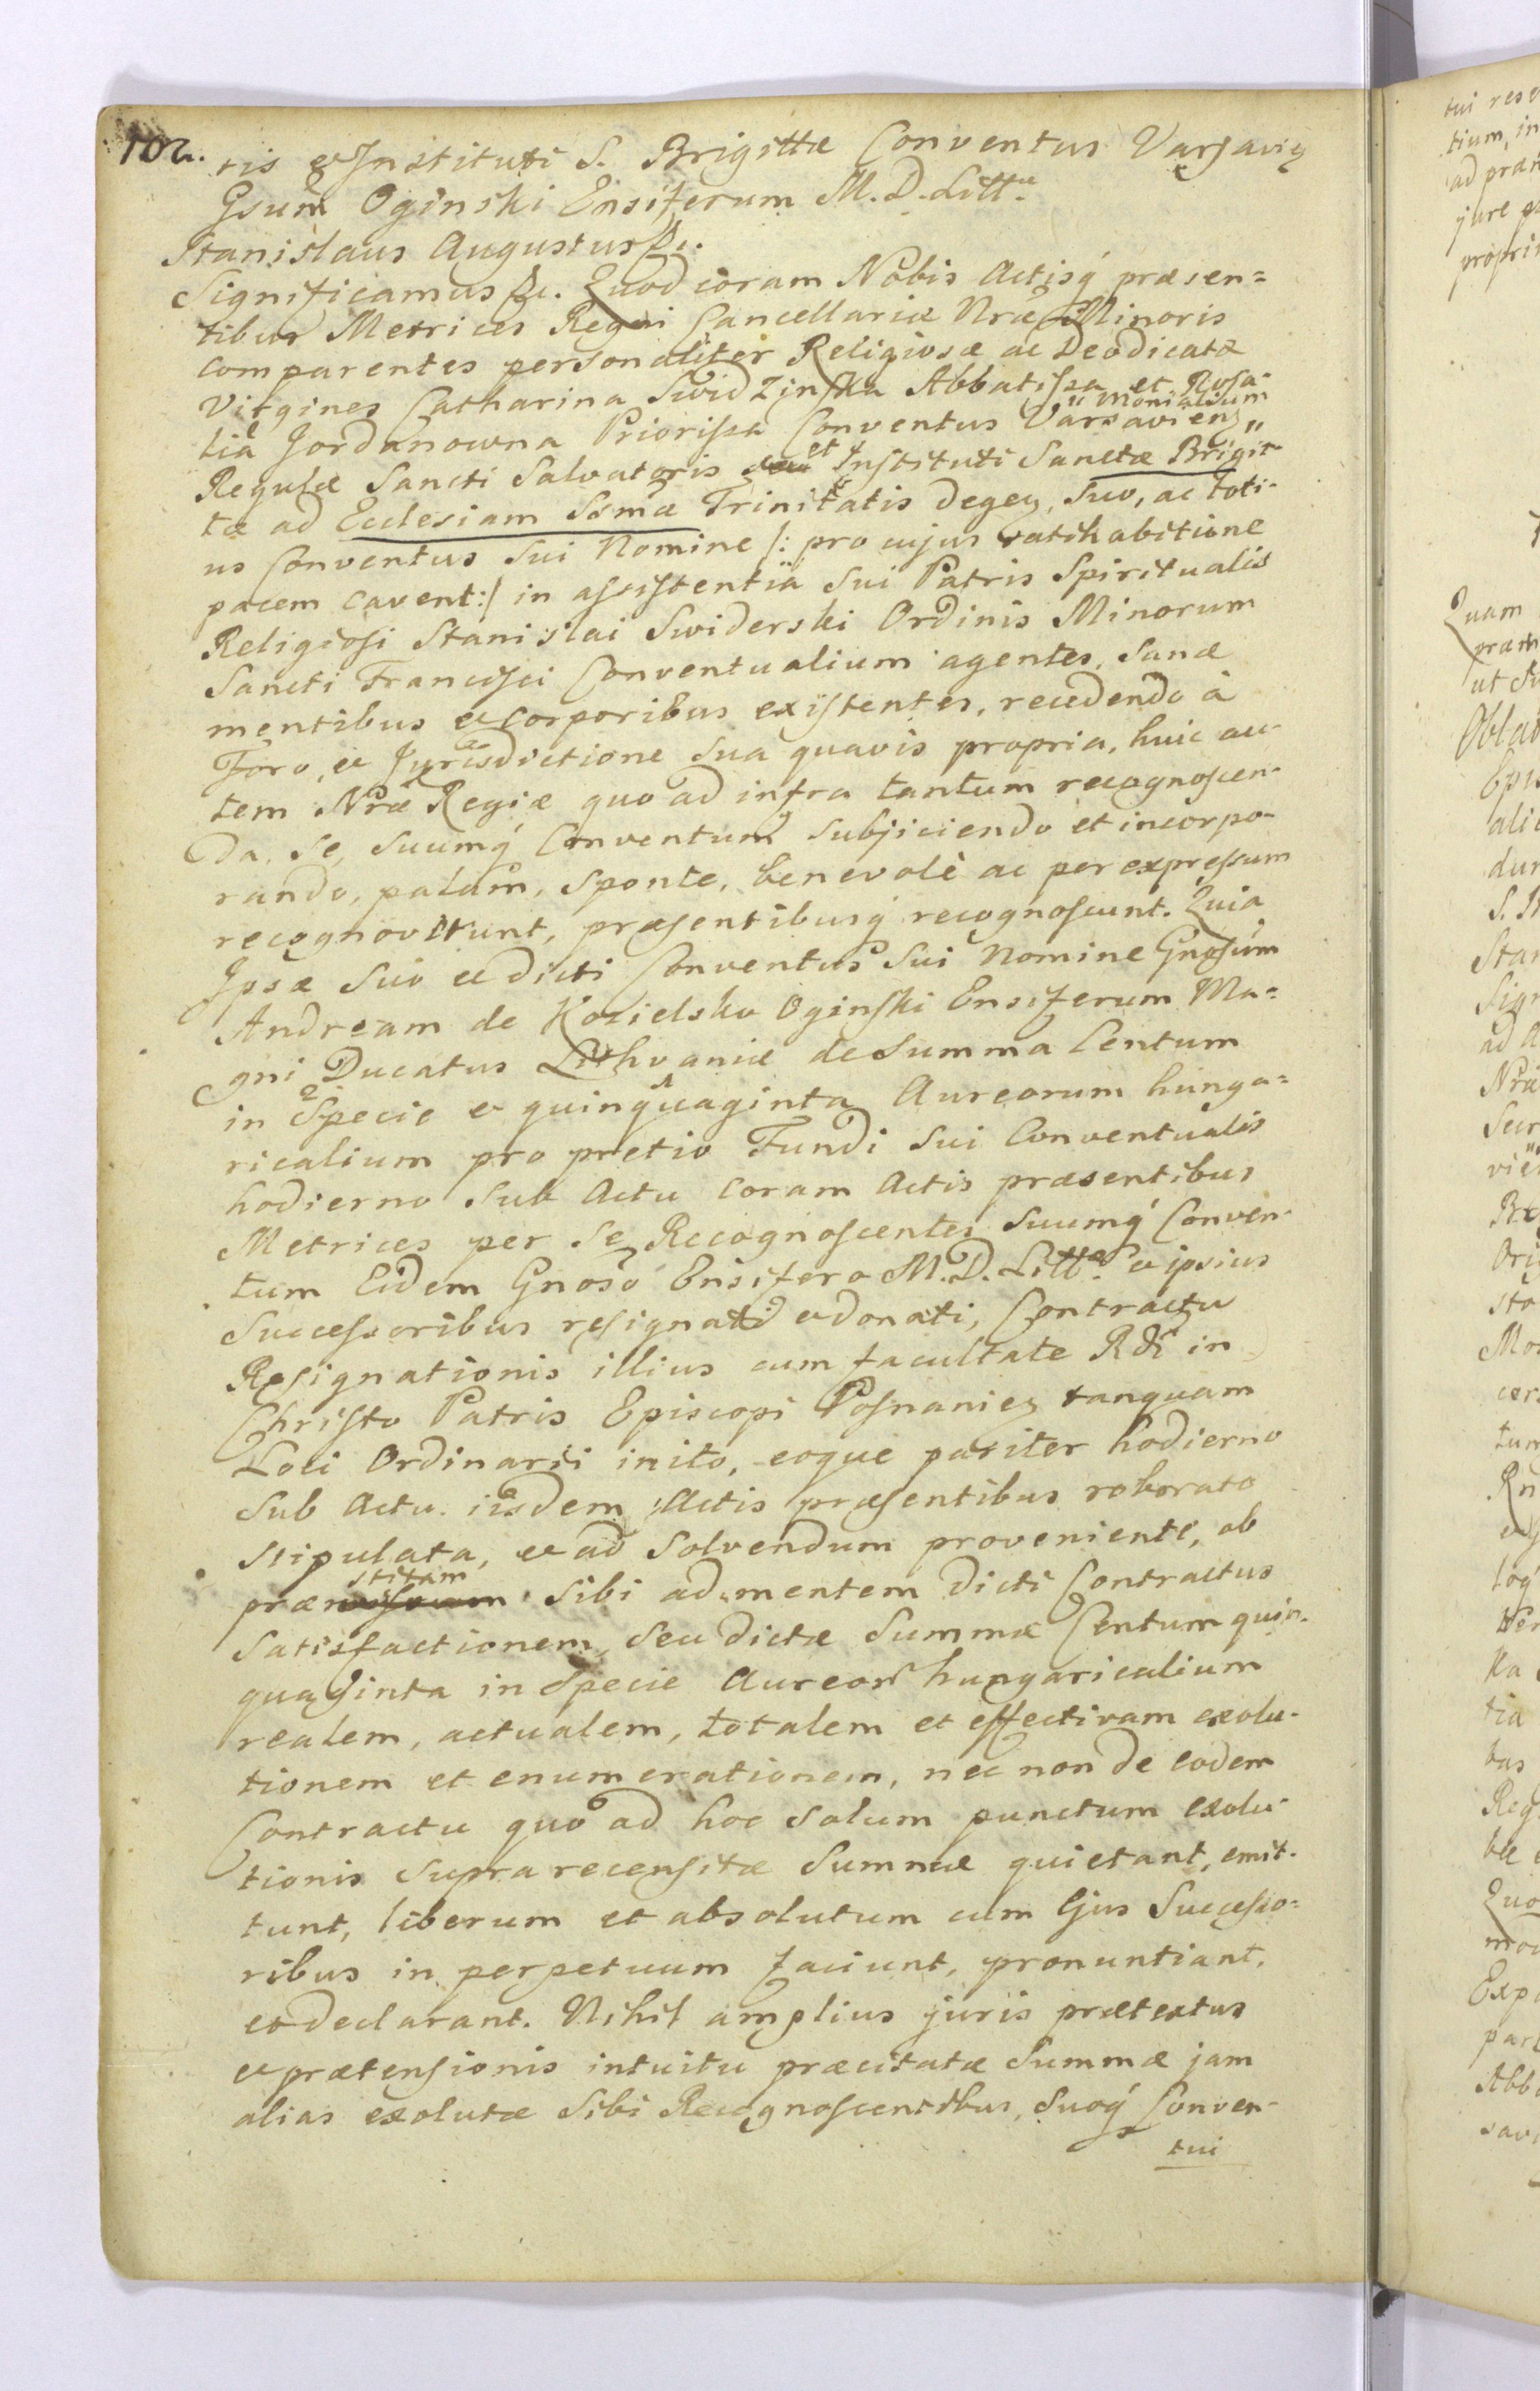 102.
tis et Instituti S. Brigittæ Conventus Varsavieȝ
Gsum Oginski Ensiferum M. D. Littæ
Stanislaus Augustus &c.
Significamus &c. Quod coram Nobis Actisq́ præsen=
tibus Metrices Regni Cancellariæ Nræ Minoris
comparentes personaliter Religiosæ ac Deodicatæ
Virgines Catharina Swidzinska Abbatissa et Rosa-
lia Jordanowna Priorissa Conventus "Monialium Varsavien"
Regulæ Sancti Salvatoris et Instituti Sanctæ Brigit-
tæ ad Ecclesiam Ssmæ Trinitatis degeȝ, suo, ac toti-
us Conventus sui Nomine /: pro cujus ratihabitione
pacem cavent :/ in assistentia sui Patris Spiritualis
Religiosi Stanislai Swiderski Ordinis Minorum
Sancti Francisci Conventualium agentes, sanæ
mentibus et corporibus existentes, recedendo à
Foro, et Jurisdictione sua quavis propria, huic au-
tem Nræ Regiæ quo ad infra tantum recognoscen-
da, se, suumq́ Conventum subjiciendo et incorpo-
rando, palam, sponte, benevolè ac per expressum
recognoverunt, præsentibusq́ recognoscunt. Quia
Ipsæ suo et dicti Conventus sui Nomine Gnosum
Andream de Kozielsko Oginski Ensiferum Ma=
gni Ducatus Lithvaniæ de Summa Centum
in Specie et quinquaginta Aureorum hunga=
ricalium pro pretio Fundi sui Conventualis
hodierno sub Actu coram Actis præsentibus
Metrices per se Recognoscentes suumq́ Conven-
tum Eidem Gnoso Ensifero M. D. Littæ et ipsius
Successoribus resignati et donati, Contractu
Resignationis illius cum facultate Rdi in
Christo Patris Episcopi Posnanieȝ tanquam
Loci Ordinarii inito, eoque pariter hodierno
sub Actu iisdem Actis præsentibus roborato
stipulata, et ad solvendum proveniente, ob
præstitam sibi ad mentem dicti Contractus
Satisfactionem, seu dictæ Summæ Centum quin-
quaginta in Specie Aureor hungaricalium
realem, actualem, totalem et effectivam exolu-
tionem et enumerationem, nec non de eodem
Contractu quo ad hoc solum punctum exolu-
tionis supra recensitæ Summæ quietant, emit-
tunt, liberum et absolutum cum Ejus Successo=
ribus in perpetuum faciunt, pronuntiant,
et declarant. Nihil amplius juris prætextus
et prætensionis intuitu præcitatæ Summæ jam
alias exolutæ sibi Recognoscentibus, suoq́ Conven-
tui